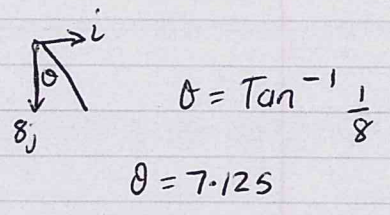 i
θ
8j
θ = Tan⁻¹ 1/8
θ = 7.125